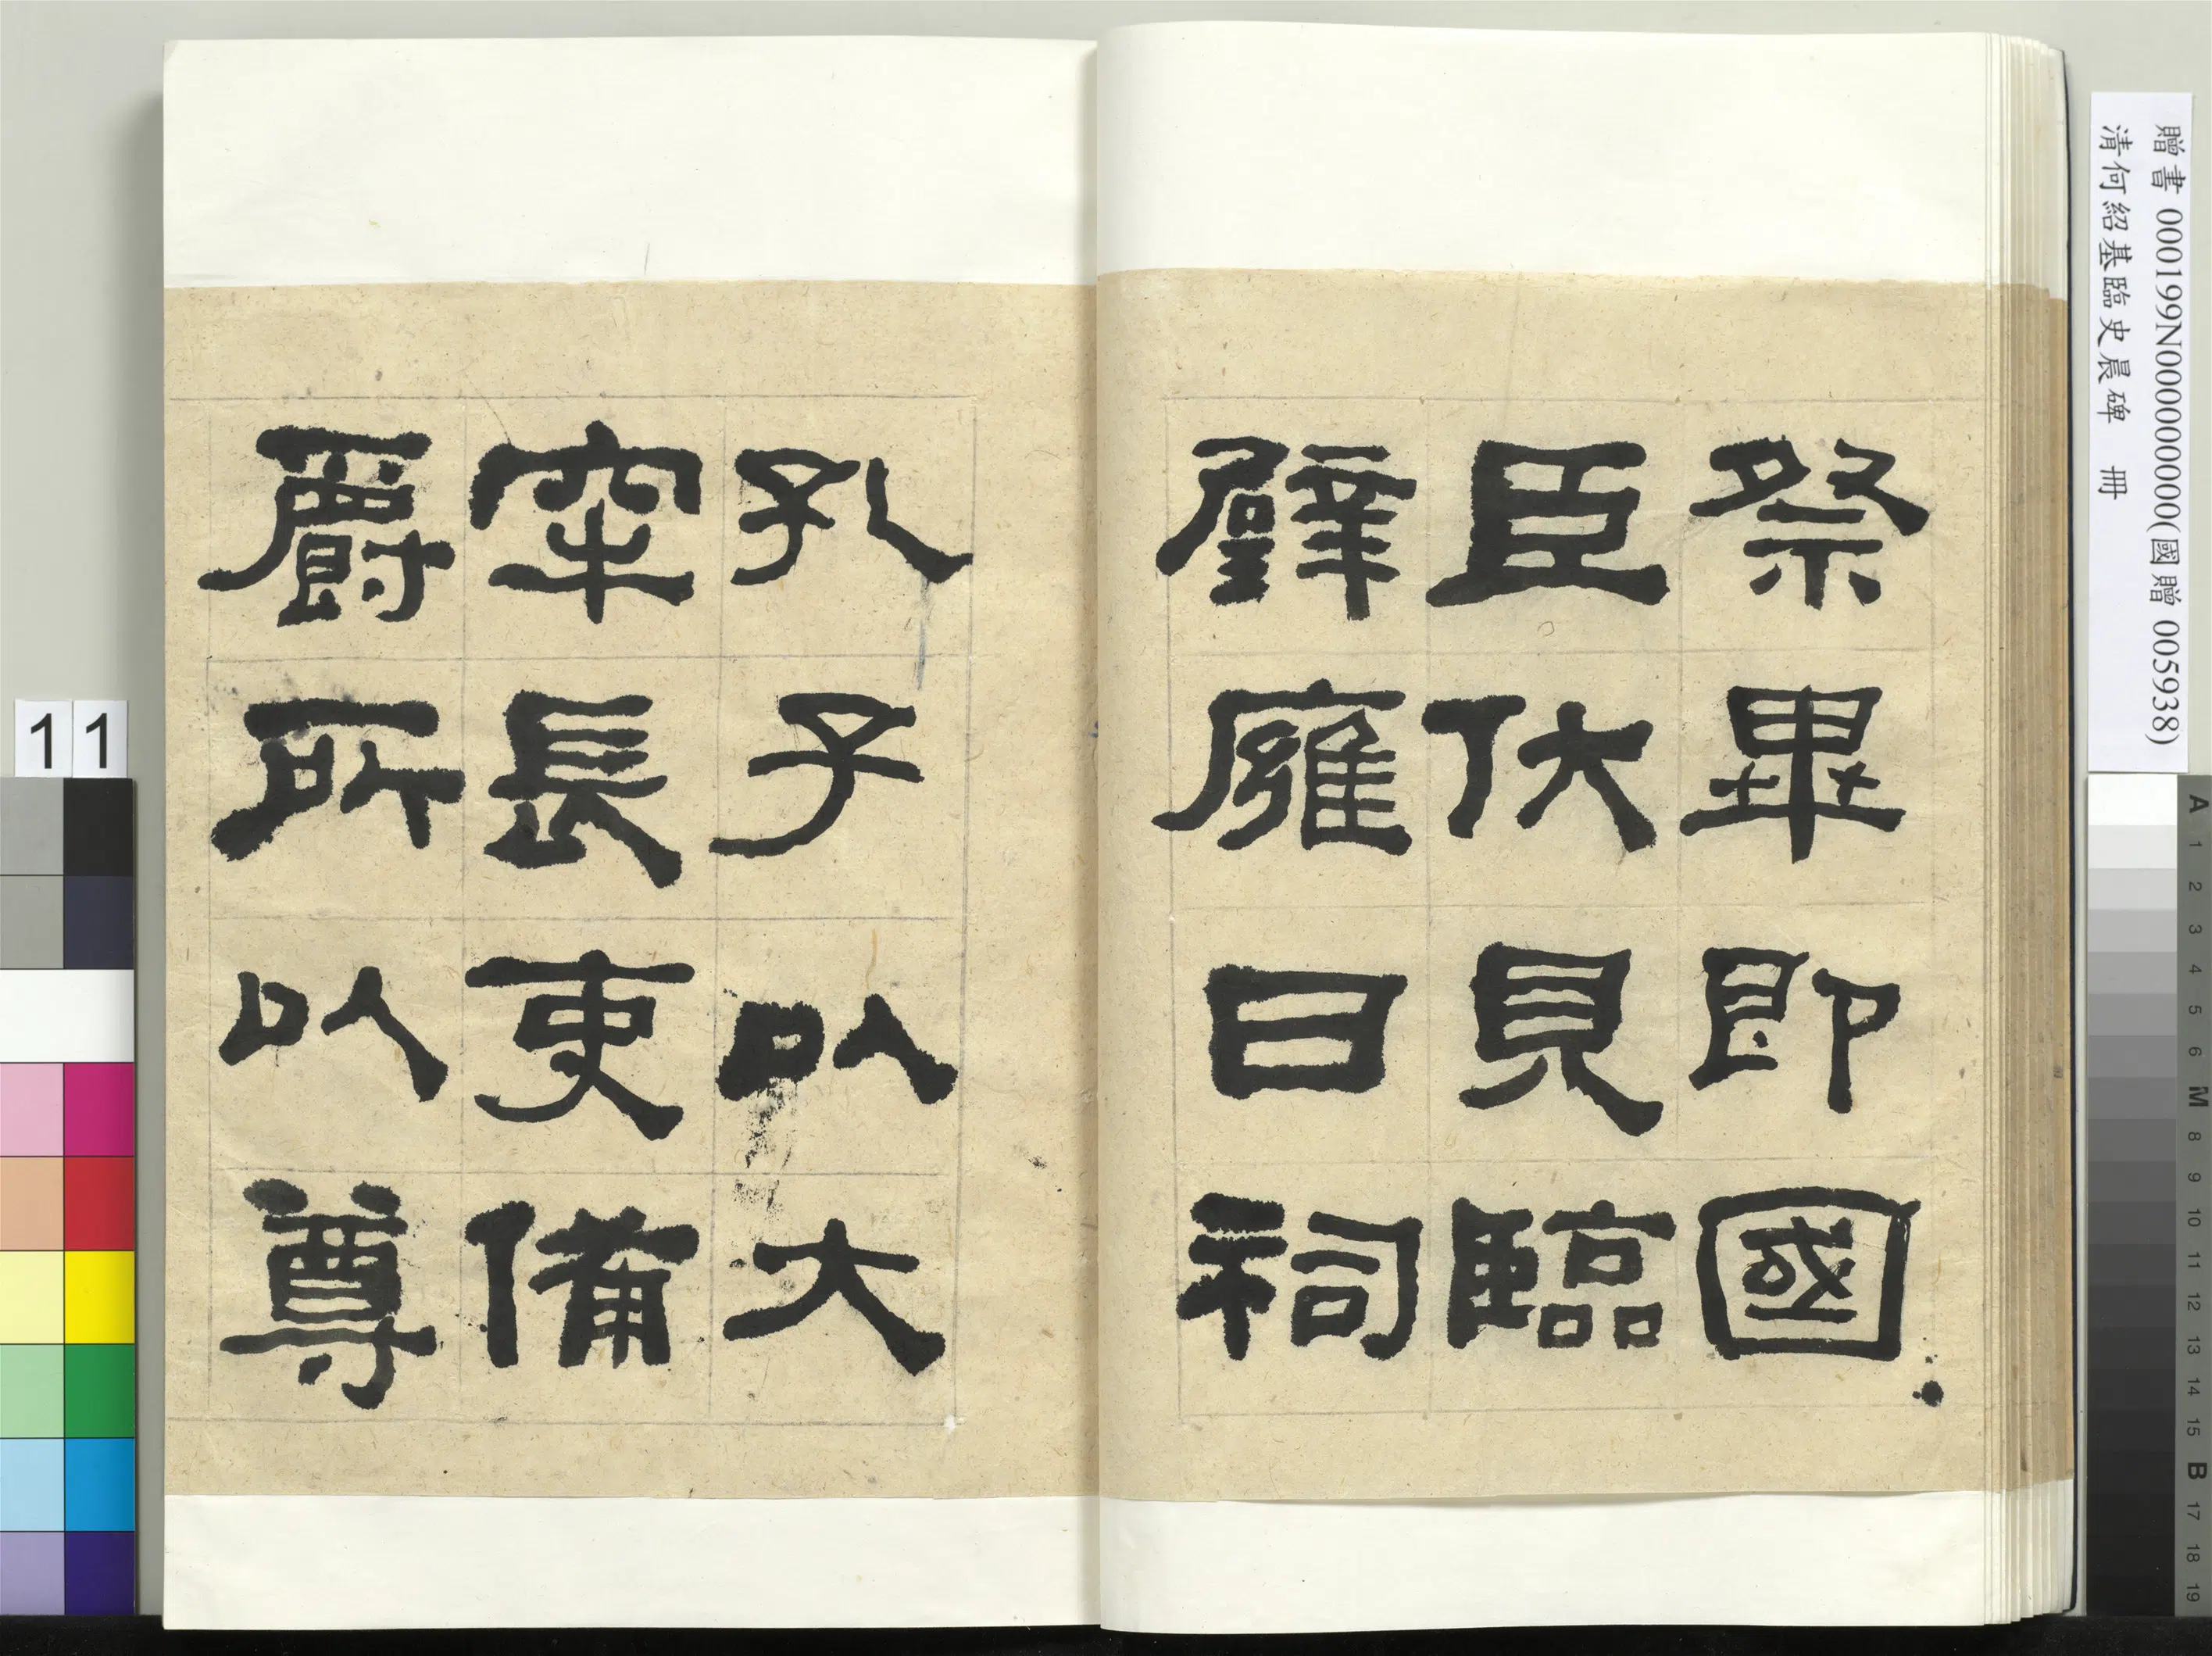 祭畢即國
臣伏見臨
辟廱日祠
孔子以大
牢長吏備
爵所以尊
贈書 000199N000000000(國贈 005938)
清何紹基臨史晨碑 冊
11
A 1 2 3 4 5 6 M 8 9 10 11 12 13 14 15 B 17 18 19